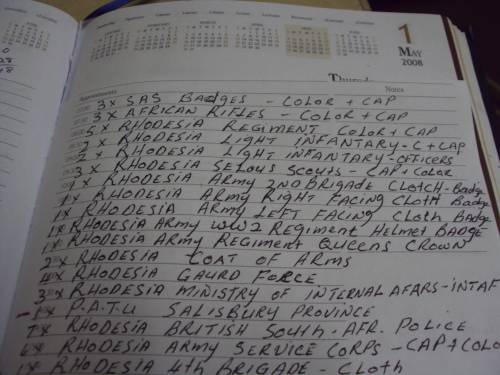 1
MAY
2008
Thursday
Appointments
Notes
3 x SAS BADGES - COLOR + CAP
3 x AFRICAN RIFLES - COLOR + CAP
5 x RHODESIA REGIMENT COLOR + CAP
2 x RHODESIA LIGHT INFANTARY - C + CAP
2 x RHODESIA LIGHT INFANTARY - OFFICERS
3 x RHODESIA SELOUS SCOUTS - CAP + COLOR
1 x RHODESIA ARMY 2ND BRIGADE CLOTCH - Badge
1 x RHODESIA ARMY RIGHT FACING CLOTH Badge
1 x RHODESIA ARMY LEFT FACING Cloth Badge
1 x RHODESIA ARMY WW2 REGIMENT HELMET BADGE
1 x RHODESIA ARMY REGIMENT QUEENS CROWN
2 x RHODESIA COAT OF ARMS
4 x RHODESIA GAURD FORCE
3 x RHODESIA MINISTRY OF INTERNAL AFARS - INTAF
- 1 x P.A.T.U SALISBURY PROVINCE
7 x RHODESIA BRITISH SOUTH - AFR. POLICE
6 x RHODESIA ARMY SERVICE CORPS - CAP + COLO
1 x RHODESIA 4th BRIGADE - Cloth